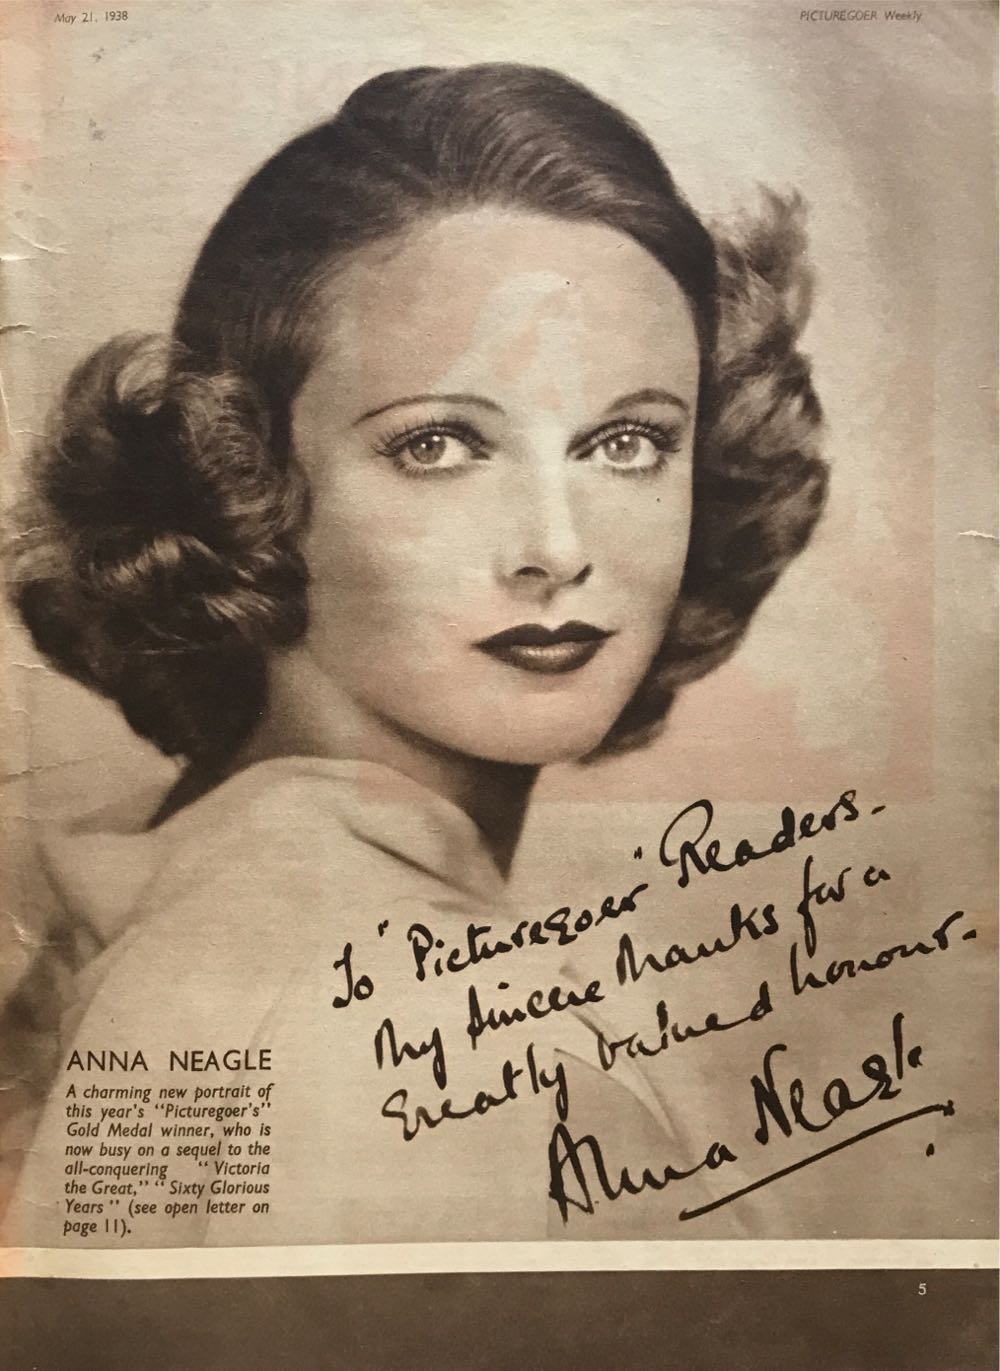 May 21, 1938
PICTUREGOER Weekly
To "Picturegoer" Readers-
My sincere thanks for a
greatly valued honour-
Anna Neagle
ANNA NEAGLE
A charming new portrait of
this year's "Picturegoer's"
Gold Medal winner, who is
now busy on a sequel to the
all-conquering "Victoria
the Great," "Sixty Glorious
Years" (see open letter on
page 11).
5